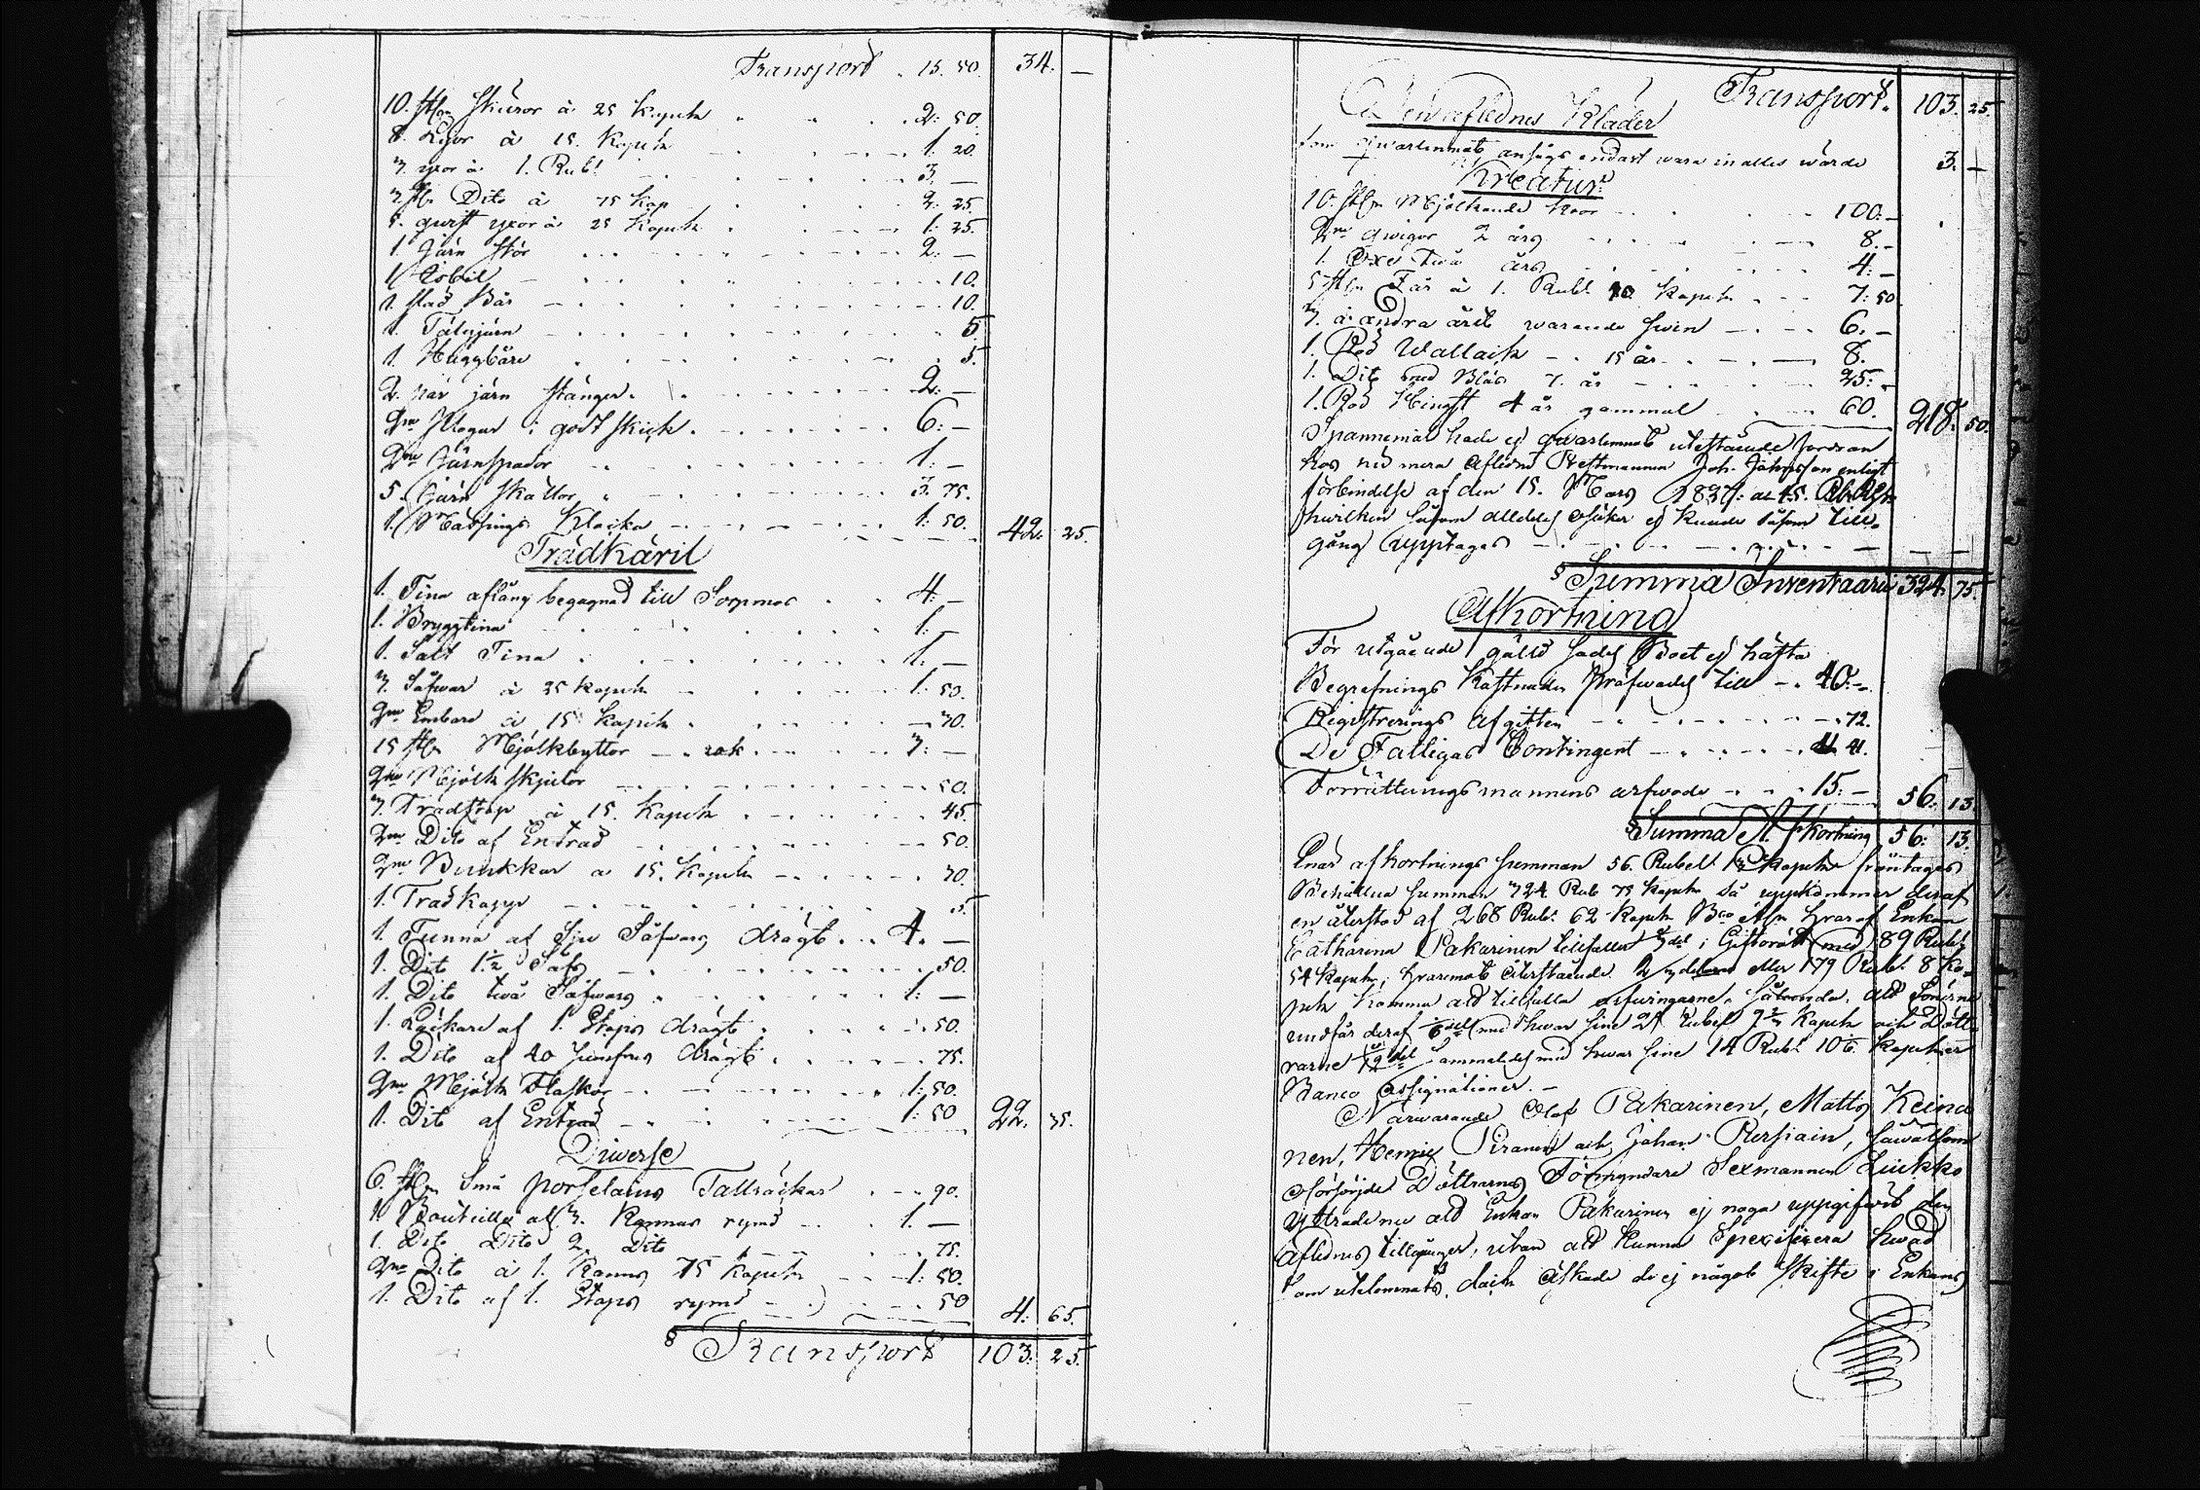 Transport . 15. 50. 34. —
10. st:n Skäror à 25 Kopek 2: 50.
8. Lijor à 15. Kopek 1. 20.
3. yxor à 1. Rub: 3. —
3. st: Dito à 75 Kop 2: 25
5. qwist yxor à 25 Kopek 1: 25.
1 Järn stör 2. —
1 Isbil 10.
1. stad Bår 10.
1. Täljjärn 5
1. Huggbäre 5.
2. par järn stänger. 2. —
2ne Plogar i godt skick 6: —
2ne Järnspador 1: —
5. Järn skållor 3. 75.
1. Mässings Klocka 1: 50. 42. 25.
Trädkäril
1. Tina aflång begagnad till 4. —
1. Bryggtina 1. —
1. Salt Tina 1. —
3. Såfwar à 25 kopek 1. 50.
2ne Embare à 15 Kopek 30.
15 st:n Mjölkbyttor 3: —
2ne Mjölk skjulor 50.
3. Trädstop à 15. Kopek 45.
2ne Dito af Enträd 50.
2ne Bunkkar a 15. Kopek 30.
1. Trädkopp 5.
1. Tunna af Sju Såfwars drägt 4. —
1. Dit 1½ Såfs 50.
1. Dito två Såfwars 1: —
1. Läckare af 1. Stops drägt 50.
1. Dito af 20 drägt 75.
2ne Mjölk Flaskor 1: 50.
1. Dit af Enträd 1: 50 22. 35.
Diwerse
6. st:n Små porselains Tallräckar 90.
1. Bouteille af 3. Kannas rymd 1. —
1. Dito Dito 2 Dito 75.
2ne Dito à 1. Kanns 75 Kopek 1: 50.
1. Dito af 1. Stops rymd 50 4: 65.
Transport 103. 25.
Transport. 103. 25.
Den aflednes Kläder
som qwarlemnats ansågs endast wara in alles wärde 3. —
Kreatur
10. st:n Mjölkande Koor 100. —
2ne qwigor 2 års 8. —
1. Oxe två års 4: —
5 st:n Får à 1. Rubl 50 Kopek 7: 50
3. à andra året warande swin 6. —
1. Röd Wallack 15 år 8.
1. Dito med Bläs 7. år 25: —
1. Röd Hingst 4 år gammal 60. 218. 50.
Spannemål hade ej qwarlemnats utestående fordran
hos nu mera Aflidne Joh. enligt
förbindelse af den 15. Mars 1837: a 15.
hwilken såsom alldeles osäker ej kunde såsom till-
gång upptages — —
Summa Inventarii 324. 75.
Afkortning
För utgående gäld sades Boet ej häfta
Begrafnings Kostnader till 40. —
Registrerings afgiften 72.
De Fattigas Contingent 41.
Förrättningsmannens arfwode 15: — 56. 13.
Summa Afkortning 56: 13.
Enär afkortnings summan 56. Rubel 13 kopek fråntages
Behållna summan 324 Rub 75 kopek så uppkommer deraf
en återstod af 268 Rub: 62 kopek B:co Ass:n hvaraf Enkan
Catharina Pakarinen tillfaller ⅓del i Giftorätt med 89 Rubl
54 kopek; hvaremot återstående ⅔ delarne eller 179 Rubl 8 ko-
pek komma att tillfalla arfwingarne. Såtunda, att Sönerne
undfår deraf 1/6 del med hwar sine Rubel Kopek och Dött-
rarne 1/12 del med hwar sine 14 Rubl 10 kopeker
Banco Assignationer. —
Närwarande Olof Pakarinen, Matts Keina-
nen, Henric Piranen och Johan Rersiain, såwälsom
Döttrarnes Förmyndare Sexmannen Luikko
yttrade nu att Enkan Pakarinen ej noga uppgifwit den
Aflednes tillgångar, utan att kunna Spexifisera hwad
som utelemnats, dock äskade de ej något skifte i Enkans